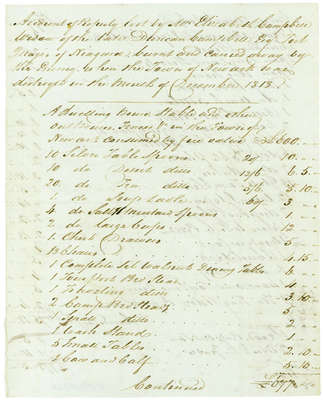 Account of Property lost by Mrs Elizabeth Campbell
Widow of the late Duncan Campbell Esqr Fort
Major of Niagara, burnt and carried away by
the Enemy, when the Town of Newark was
destroyed in the Month of December 1813.
A Dwelling House Stable and other
out Houses, in the Town of
Newark consumed by fire value £500
10 Silver Table Spoons 10
10 do Desert ditto 12/6 6. 5
20 do Tea ditto 3. 10
do Soup Ladle 3
4 do Salt & Mustard Spoons 1
2 do large Cups 12
1 Chest Drawers 5
Chairs 4. 15
1 Complete Set Walnut Dining Table 8
1 Four post Bed Stead 4
1 ditto 3. 10
2 Camp Bed Steads 5
1 ditto 2
1 Wash Stand 1
5 Small Tables 2. 10
2 Cows and Calf 5. 10
Continued £577